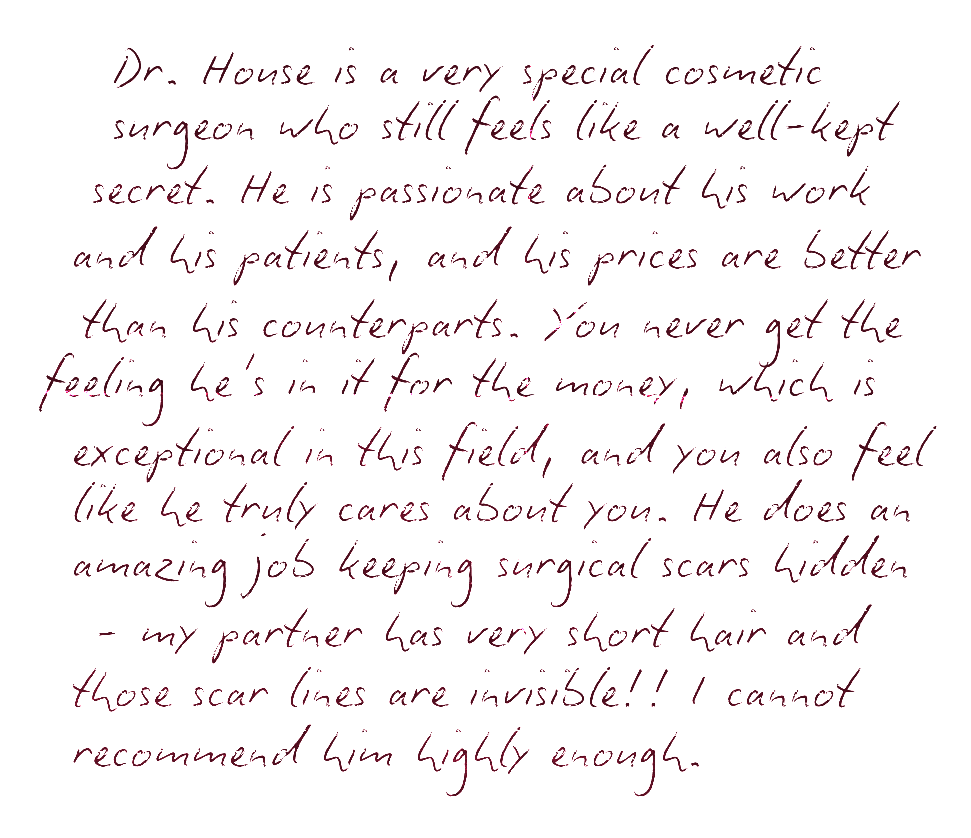 Dr. House is a very special cosmetic
surgeon who still feels like a well-kept
secret. He is passionate about his work
and his patients, and his prices are better
than his counterparts. You never get the
feeling he's in it for the money, which is
exceptional in this field, and you also feel
like he truly cares about you. He does an
amazing job keeping surgical scars hidden
- my partner has very short hair and
those scar lines are invisible!! I cannot
recommend him highly enough.